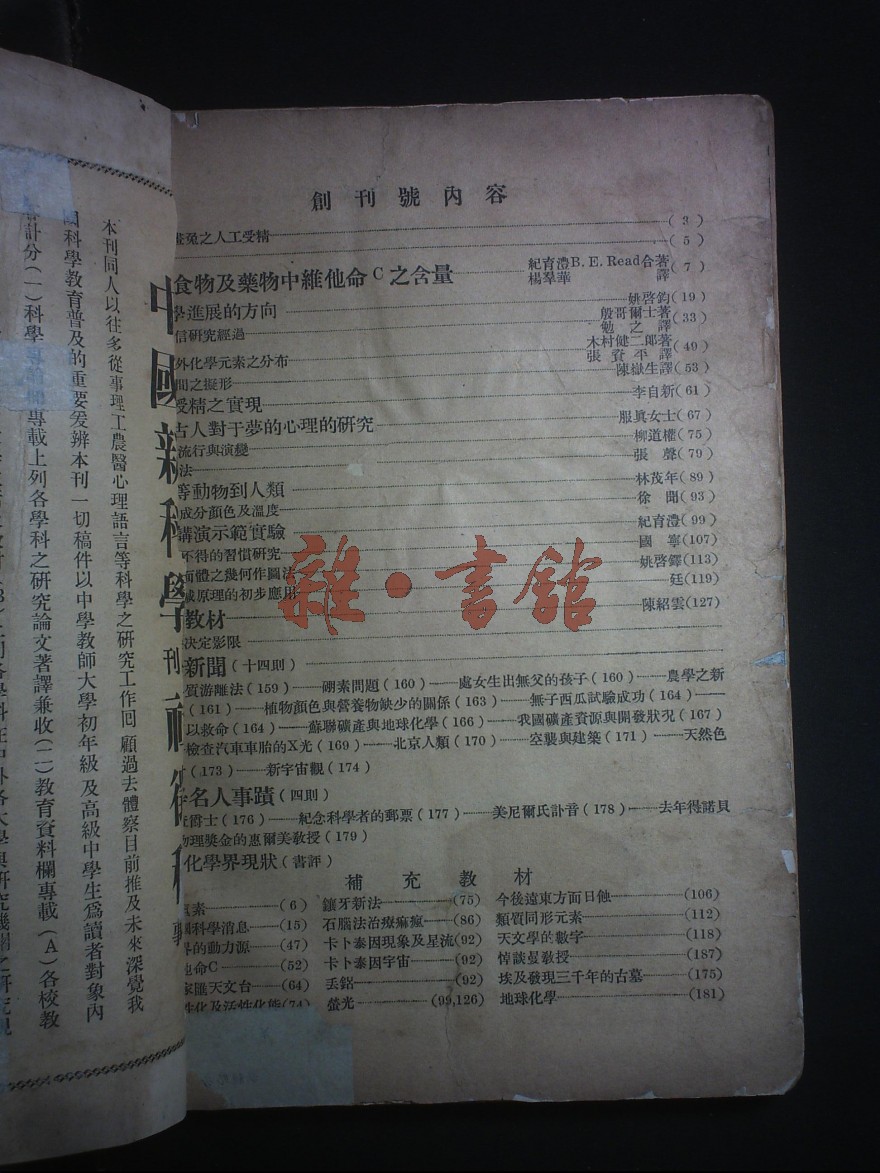 創刊號內容
畫兔之人工受精 (3)
(5)
食物及藥物中維他命C之含量 紀育澧 B. E. Read合著 楊羣華 譯 (7)
學進展的方向 姚啓鈞 (19)
信研究經過 殷哥爾士著 勉之譯 (33)
外化學元素之分布 木村健二郎著 張資平譯 (49)
間之擬形 陳嶽生譯 (53)
受精之實現 李自新 (61)
古人對于夢的心理的研究 服眞女士 (67)
流行與演變 柳道權 (75)
法 張聲 (79)
等動物到人類 林茂年 (89)
成分顏色及溫度 徐聞 (93)
講演示範實驗 紀育澧 (99)
不得的習慣研究 國寧 (107)
面體之幾何作圖法 姚啓鐸 (113)
原理的初步應用 廷 (119)
教材 陳紹雲 (127)
決定影限
新聞(十四則)
質游離法(159)——硼素問題(160)——處女生出無父的孩子(160)——農學之新
(161)——植物顏色與營養物缺少的關係(163)——無子西瓜試驗成功(164)——
以救命(164)——蘇聯礦產與地球化學(166)——我國礦產資源與開發狀況(167)
檢查汽車車胎的X光(169)——北京人類(170)——空襲與建築(171)——天然色
(173)——新宇宙觀(174)
名人事蹟(四則)
爵士(176)——紀念科學者的郵票(177)——美尼爾氏訃音(178)——去年得諾貝
物理獎金的惠爾美教授(179)
化學界現狀(書評)
補充教材
素 (6) 鑲牙新法 (75) 今後遠東方面日蝕 (106)
科學消息 (15) 石腦法治療痲瘋 (86) 類質同形元素 (112)
界的動力源 (47) 卡卜泰因現象及星流 (92) 天文學的數字 (118)
他命C (52) 卡卜泰因宇宙 (92) 悼談曼教授 (187)
家匯天文台 (64) 丢鋁 (92) 埃及發現三千年的古墓 (175)
性化及活性化能 (74) 螢光 (99,126) 地球化學 (181)
中國新科學刊社
本刊同人以往多從事理工農醫心理語言等科學之研究工作回顧過去體察目前推及未來深覺我
國科學教育普及的重要爰辦本刊一切稿件以中學教師大學初年級及高級中學生爲讀者對象內
計分(一)科學專載上列各學科之研究論文著譯兼收(二)教育資料欄專載(A)各校教
雜·書館